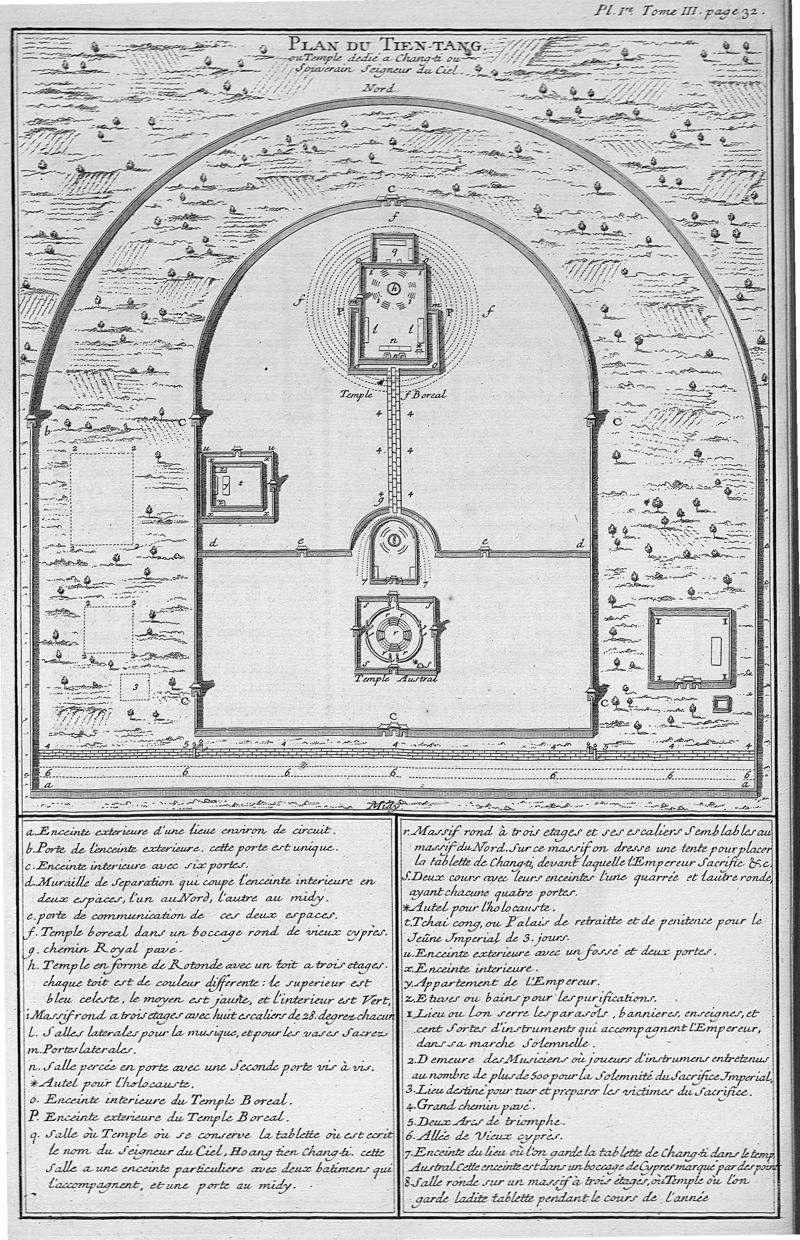 Pl. I.re Tome III. page 32.
PLAN DU TIEN-TANG.
ou Temple dedié a Chang-ti ou
Souverain Seigneur du Ciel.
Nord
C
f
q
o o
i i
h
f m m f
P P
l l
n
o o
Temple f Boreal
b C C
4 4
2 2
u u
4 4
z
y t
z
x x
4 4
g
2 2
d e 8 e d
7 7
2 2
s s
1 1
r r
r
2 2
s s
Temple Austral
3
1 1
C C
C
4 4 5 4 4 4 4 5 4 4
6 6 6 6 6 6 6
a a
Midy
a. Enceinte exterieure d'une lieue environ de circuit.
b. Porte de l'enceinte exterieure. cette porte est unique.
c. Enceinte interieure avec six portes.
d. Muraille de Separation qui coupe l'enceinte interieure en
deux espaces, l'un au Nord, l'autre au midy.
e. porte de communication de ces deux espaces.
f. Temple boreal dans un boccage rond de vieux cyprès.
g. chemin Royal pavé.
h. Temple en forme de Rotonde avec un toit a trois etages.
chaque toit est de couleur differente: le superieur est
bleu celeste, le moyen est jaune, et l'interieur est Vert,
i Massif rond a trois etages avec huit escaliers de 28. degrez chacun
l. Salles laterales pour la musique, et pour les vases Sacrez
m. Portes laterales.
n. Salle percée en porte avec une Seconde porte vis à vis.
* Autel pour l'holocauste.
o. Enceinte interieure du Temple Boreal.
P. Enceinte exterieure du Temple Boreal.
q. Salle où Temple où se conserve la tablette où est ecrit
le nom du Seigneur du Ciel, Hoang tien Chang-ti. cette
Salle a une enceinte particuliere avec deux batimens qui
l'accompagnent, et une porte au midy.
r. Massif rond à trois etages et ses escaliers Semblables au
massif du Nord. Sur ce massif on dresse une tente pour placer
la tablette de Chang-ti, devant laquelle l'Empereur Sacrifie &c.
S. Deux cours avec leurs enceintes l'une quarrée et l'autre ronde,
ayant chacune quatre portes.
* Autel pour l'holocauste.
t. Tchai cong, ou Palais de retraitte et de penitence pour le
Jeûne Imperial de 3. jours.
u. Enceinte exterieure avec un fossé et deux portes.
x. Enceinte interieure.
y. Appartement de l'Empereur.
z. Etuves ou bains pour les purifications.
1. Lieu ou l'on serre les parasols, bannieres, enseignes, et
cent Sortes d'instruments qui accompagnent l'Empereur,
dans sa marche Solemnelle.
2. Demeure des Musiciens où joueurs d'instrumens entretenus
au nombre de plus de 500 pour la Solemnité du Sacrifice Imperial,
3. Lieu destiné pour tuer et preparer les victimes du Sacrifice.
4. Grand chemin pavé.
5. Deux Arcs de triomphe.
6. Allée de Vieux cyprès.
7. Enceinte du lieu où l'on garde la tablette de Chang-ti dans le temp.
Austral. Cette enceinte est dans un boccage de Cypres marqué par des point
8 Salle ronde sur un massif à trois étages, ou Temple ou l'on
garde ladite tablette pendant le cours de l'année